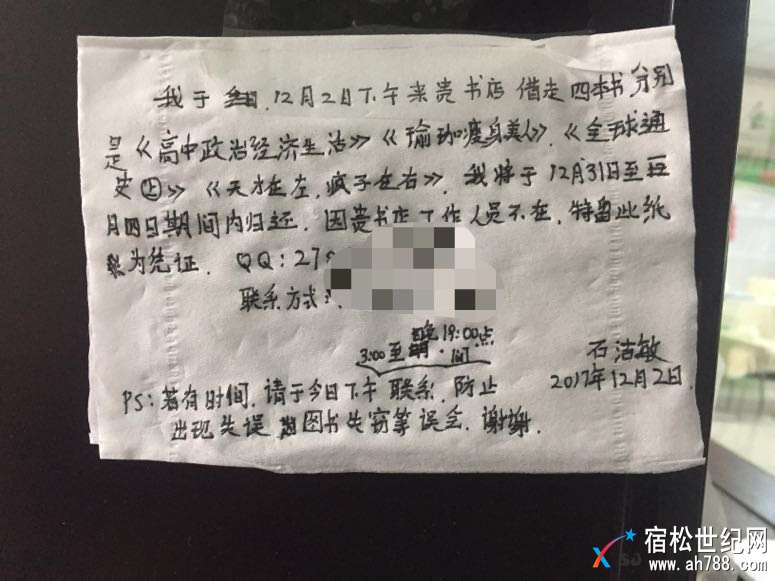 我于 12月2日下午来贵书店 借走四本书 分别
是《高中政治经济生活》《瑜珈瘦身美人》.《全球通
史㊤》《天才在左,疯子在右》.我将于12月31日至
月四日期间内归还.因贵书店工作人员不在,特留此纸
为凭证. QQ:27
联系方式:
晚19:00点
3:00至 间
石洁敏
2017年12月2日.
PS:若有时间,请于今日下午联系,防止
出现失误 图书失窃等误会.谢谢.
宿松世纪网
www.ah788.com